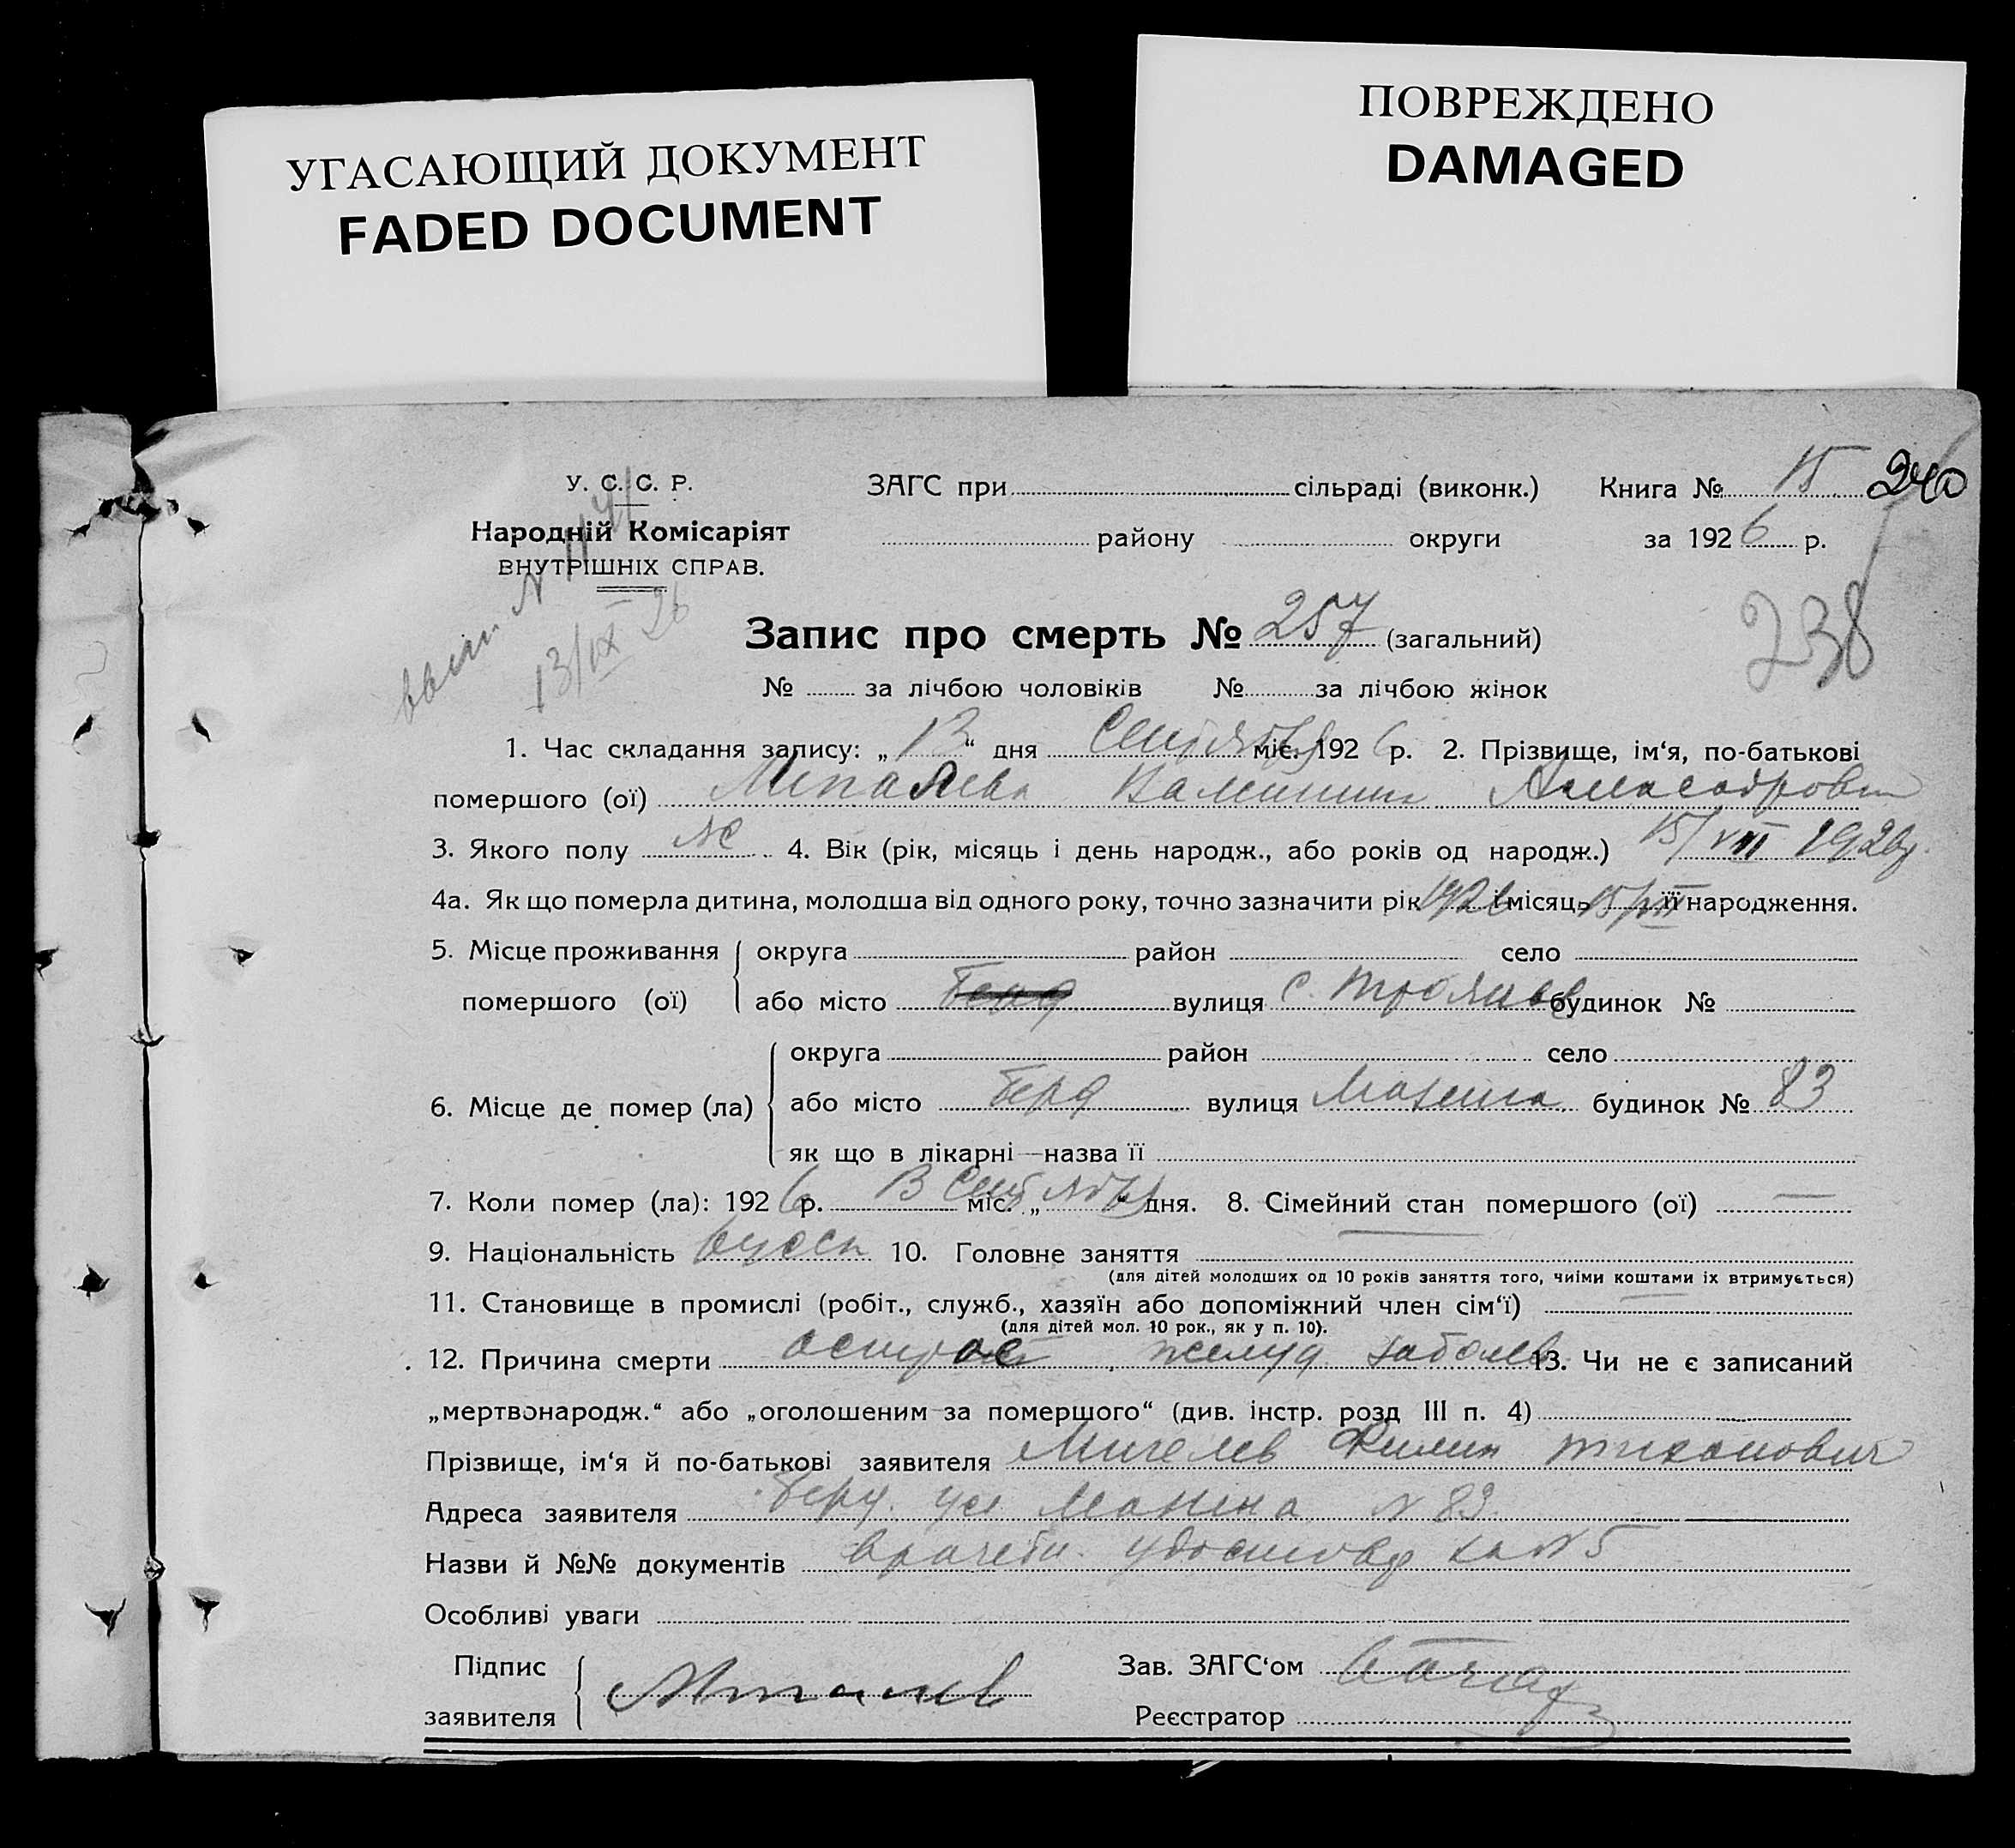 УГАСАЮЩИЙ ДОКУМЕНТ
FADED DOCUMENT
ПОВРЕЖДЕНО
DAMAGED
У. С. С. Р.
Народній Комісаріят
ВНУТРІШНІХ СПРАВ.
ЗАГС при сільраді (виконк.) Книга № 15 240
району округи за 1926 р.
13/IX 26
238
Запис про смерть № 257 (загальний)
№ за лічбою чоловіків № за лічбою жінок
1. Час складання запису: „13“ дня Сентября міс. 1926 р. 2. Прізвище, ім‘я, по-батькові
помершого (ої)
3. Якого полу 4. Вік (рік, місяць і день народж., або років од народж.) 15/VIII 1926г.
4а. Як що померла дитина, молодша від одного року, точно зазначити рік 1926 і місяць 15/VIII її народження.
5. Місце проживання округа район село
помершого (ої) або місто Берд вулиця с. будинок №
округа район село
6. Місце де помер (ла) або місто Берд вулиця будинок № 83
як що в лікарні—назва її
7. Коли помер (ла): 1926 р. 13 Сентября міс. „ “ дня. 8. Сімейний стан помершого (ої) —
9. Національність 10. Головне заняття —
(для дітей молодших од 10 років заняття того, чиїми коштами їх втримується)
11. Становище в промислі (робіт., служб., хазяїн або допоміжний член сім‘ї) —
(для дітей мол. 10 рок., як у п. 10).
12. Причина смерти острое желуд заболев 13. Чи не є записаний
„мертвонародж.“ або „оголошеним за помершого“ (див. інстр. розд III п. 4)
Прізвище, ім‘я й по-батькові заявителя Филип Тихонович
Адреса заявителя Берд. ул N 83
Назви й №№ документів врачебн. удостовер за N 5
Особливі уваги
Підпис
заявителя
Зав. ЗАГС‘ом
Реєстратор